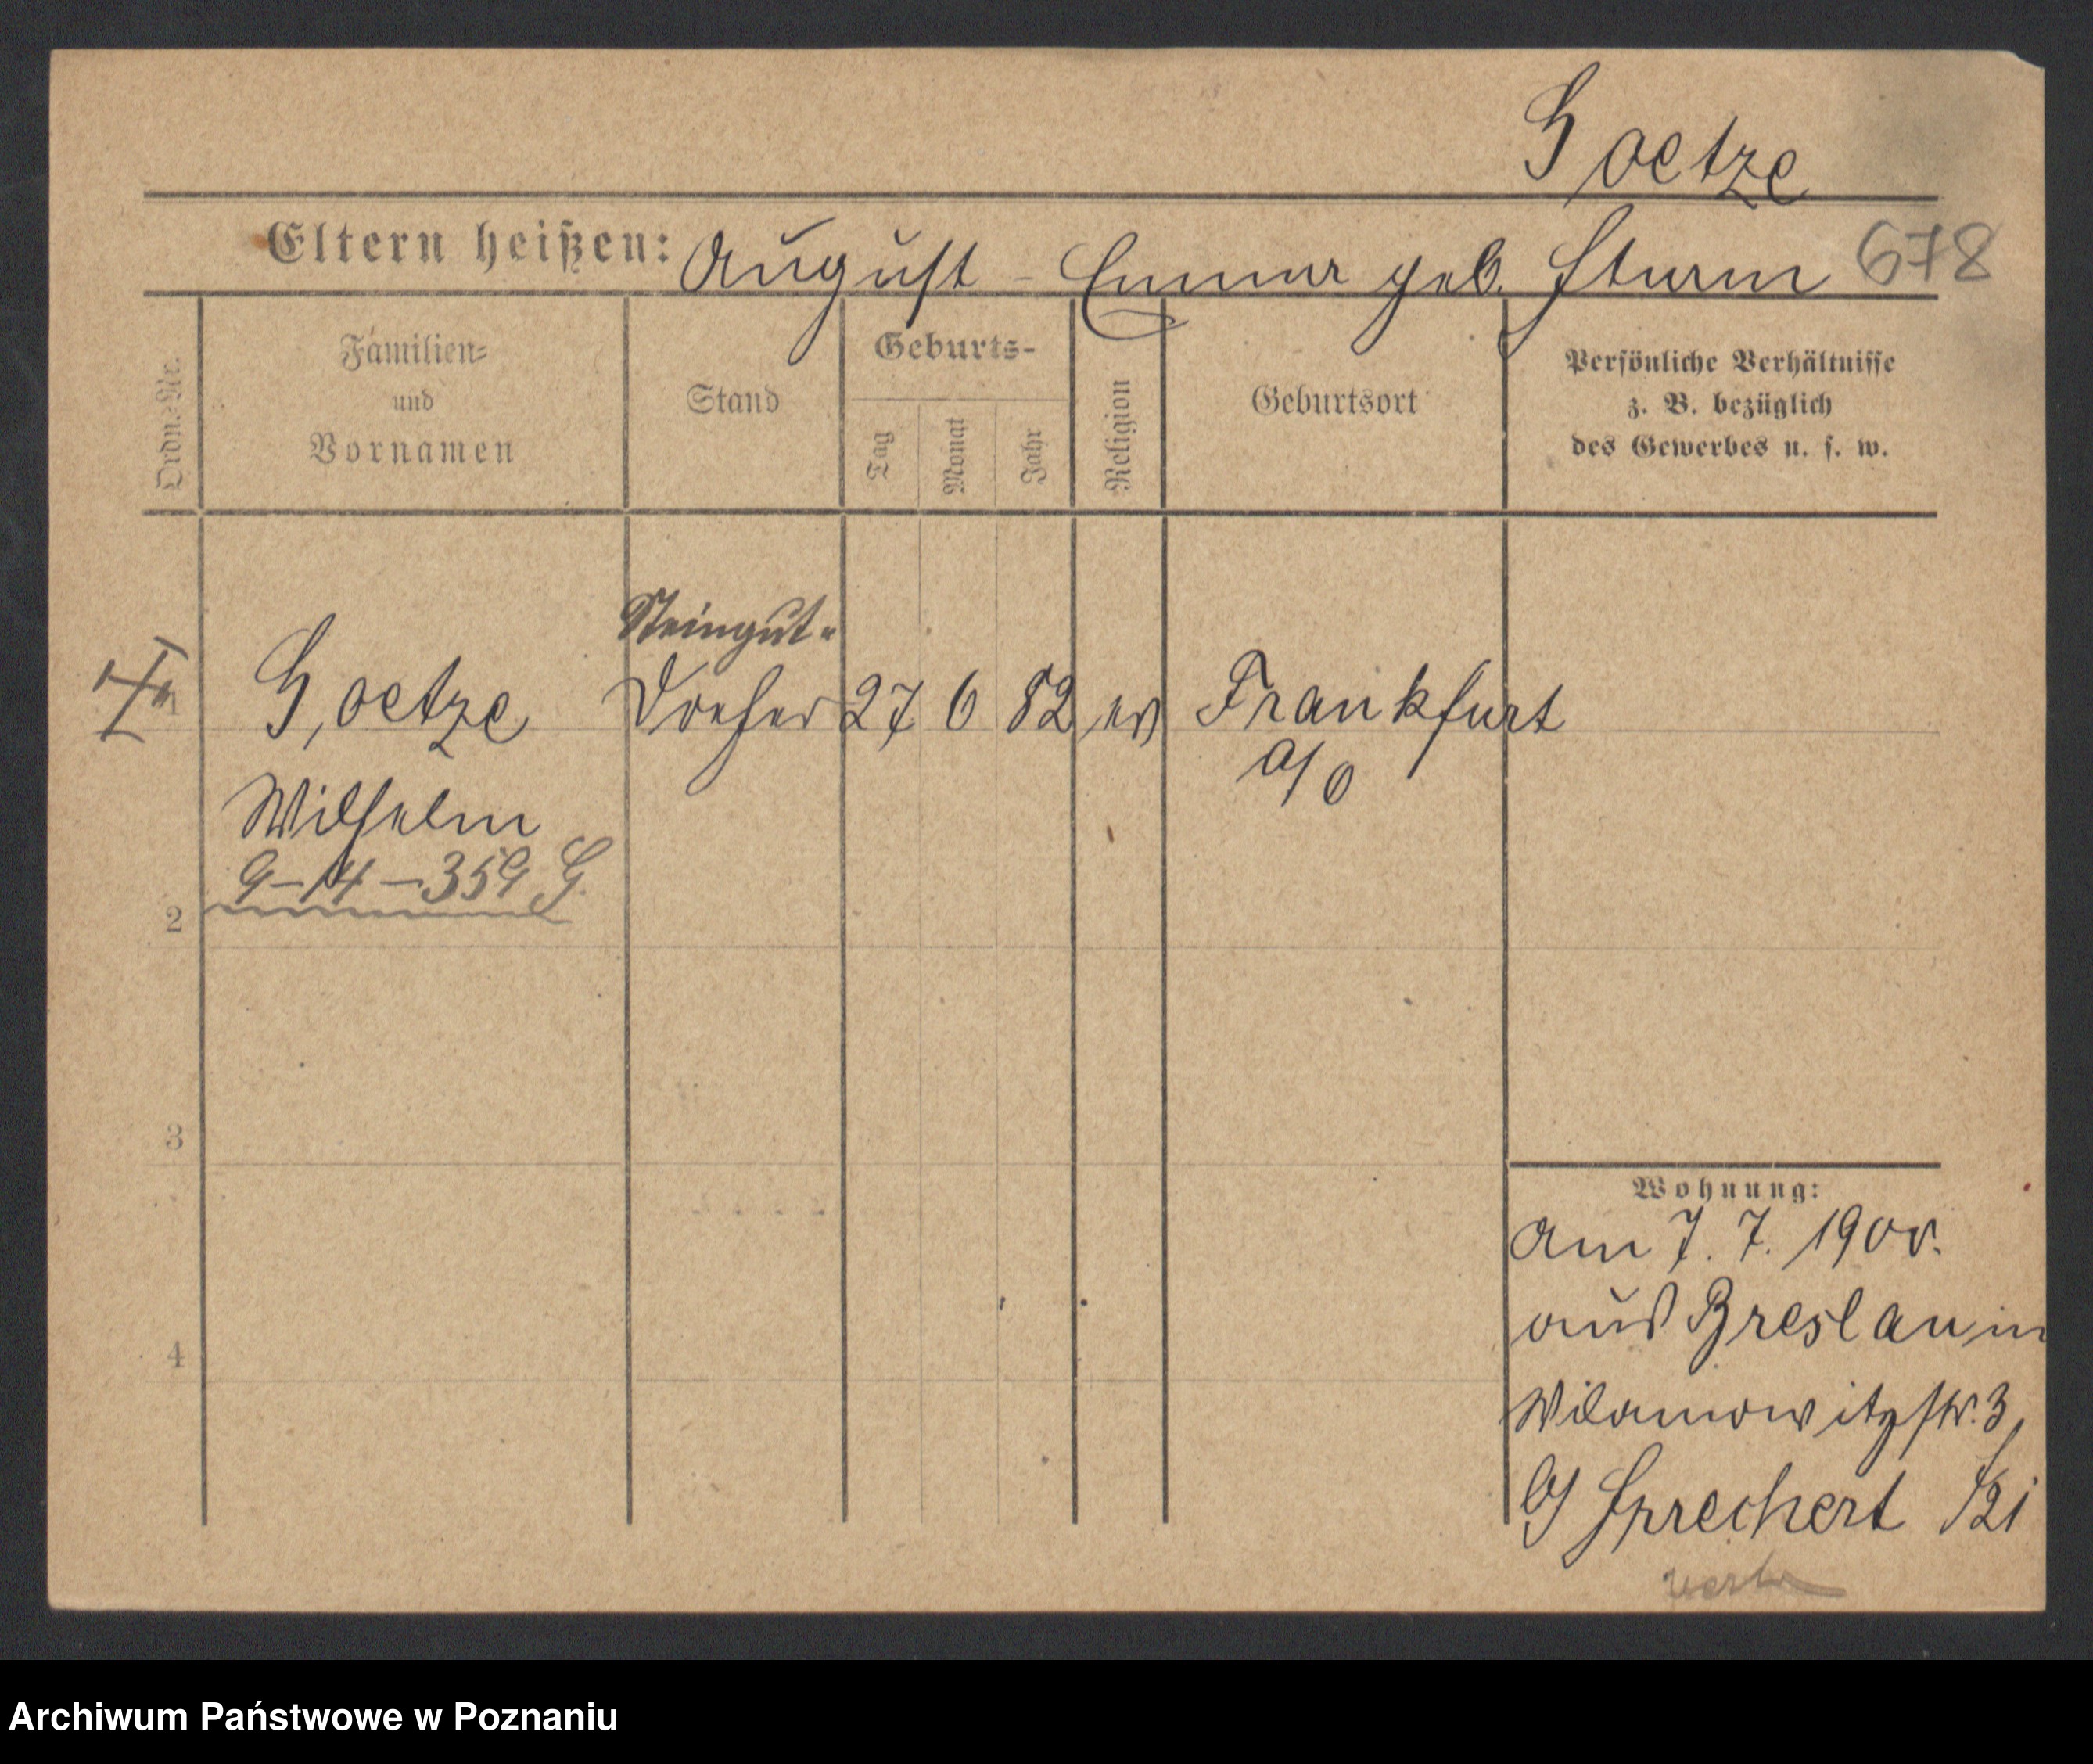 Goetze
Eltern heißen: August - Emma geb. Sturm 678
Ordn.-Nr.
Familien-
und
Vornamen
Stand
Geburts-
Tag
Monat
Jahr
Religion
Geburtsort
Persönliche Verhältnisse
z. B. bezüglich
des Gewerbes u. s. w.
Steingut-
1 Goetze Dreher 27 6 82 ev Frankfurt
a/O
Wilhelm
9-14-359 G.
2
3
4
Wohnung:
am 7. 7. 1900.
aus Breslau in
Wilamowitzstr. 3
b/ Sprechert
Archiwum Państwowe w Poznaniu